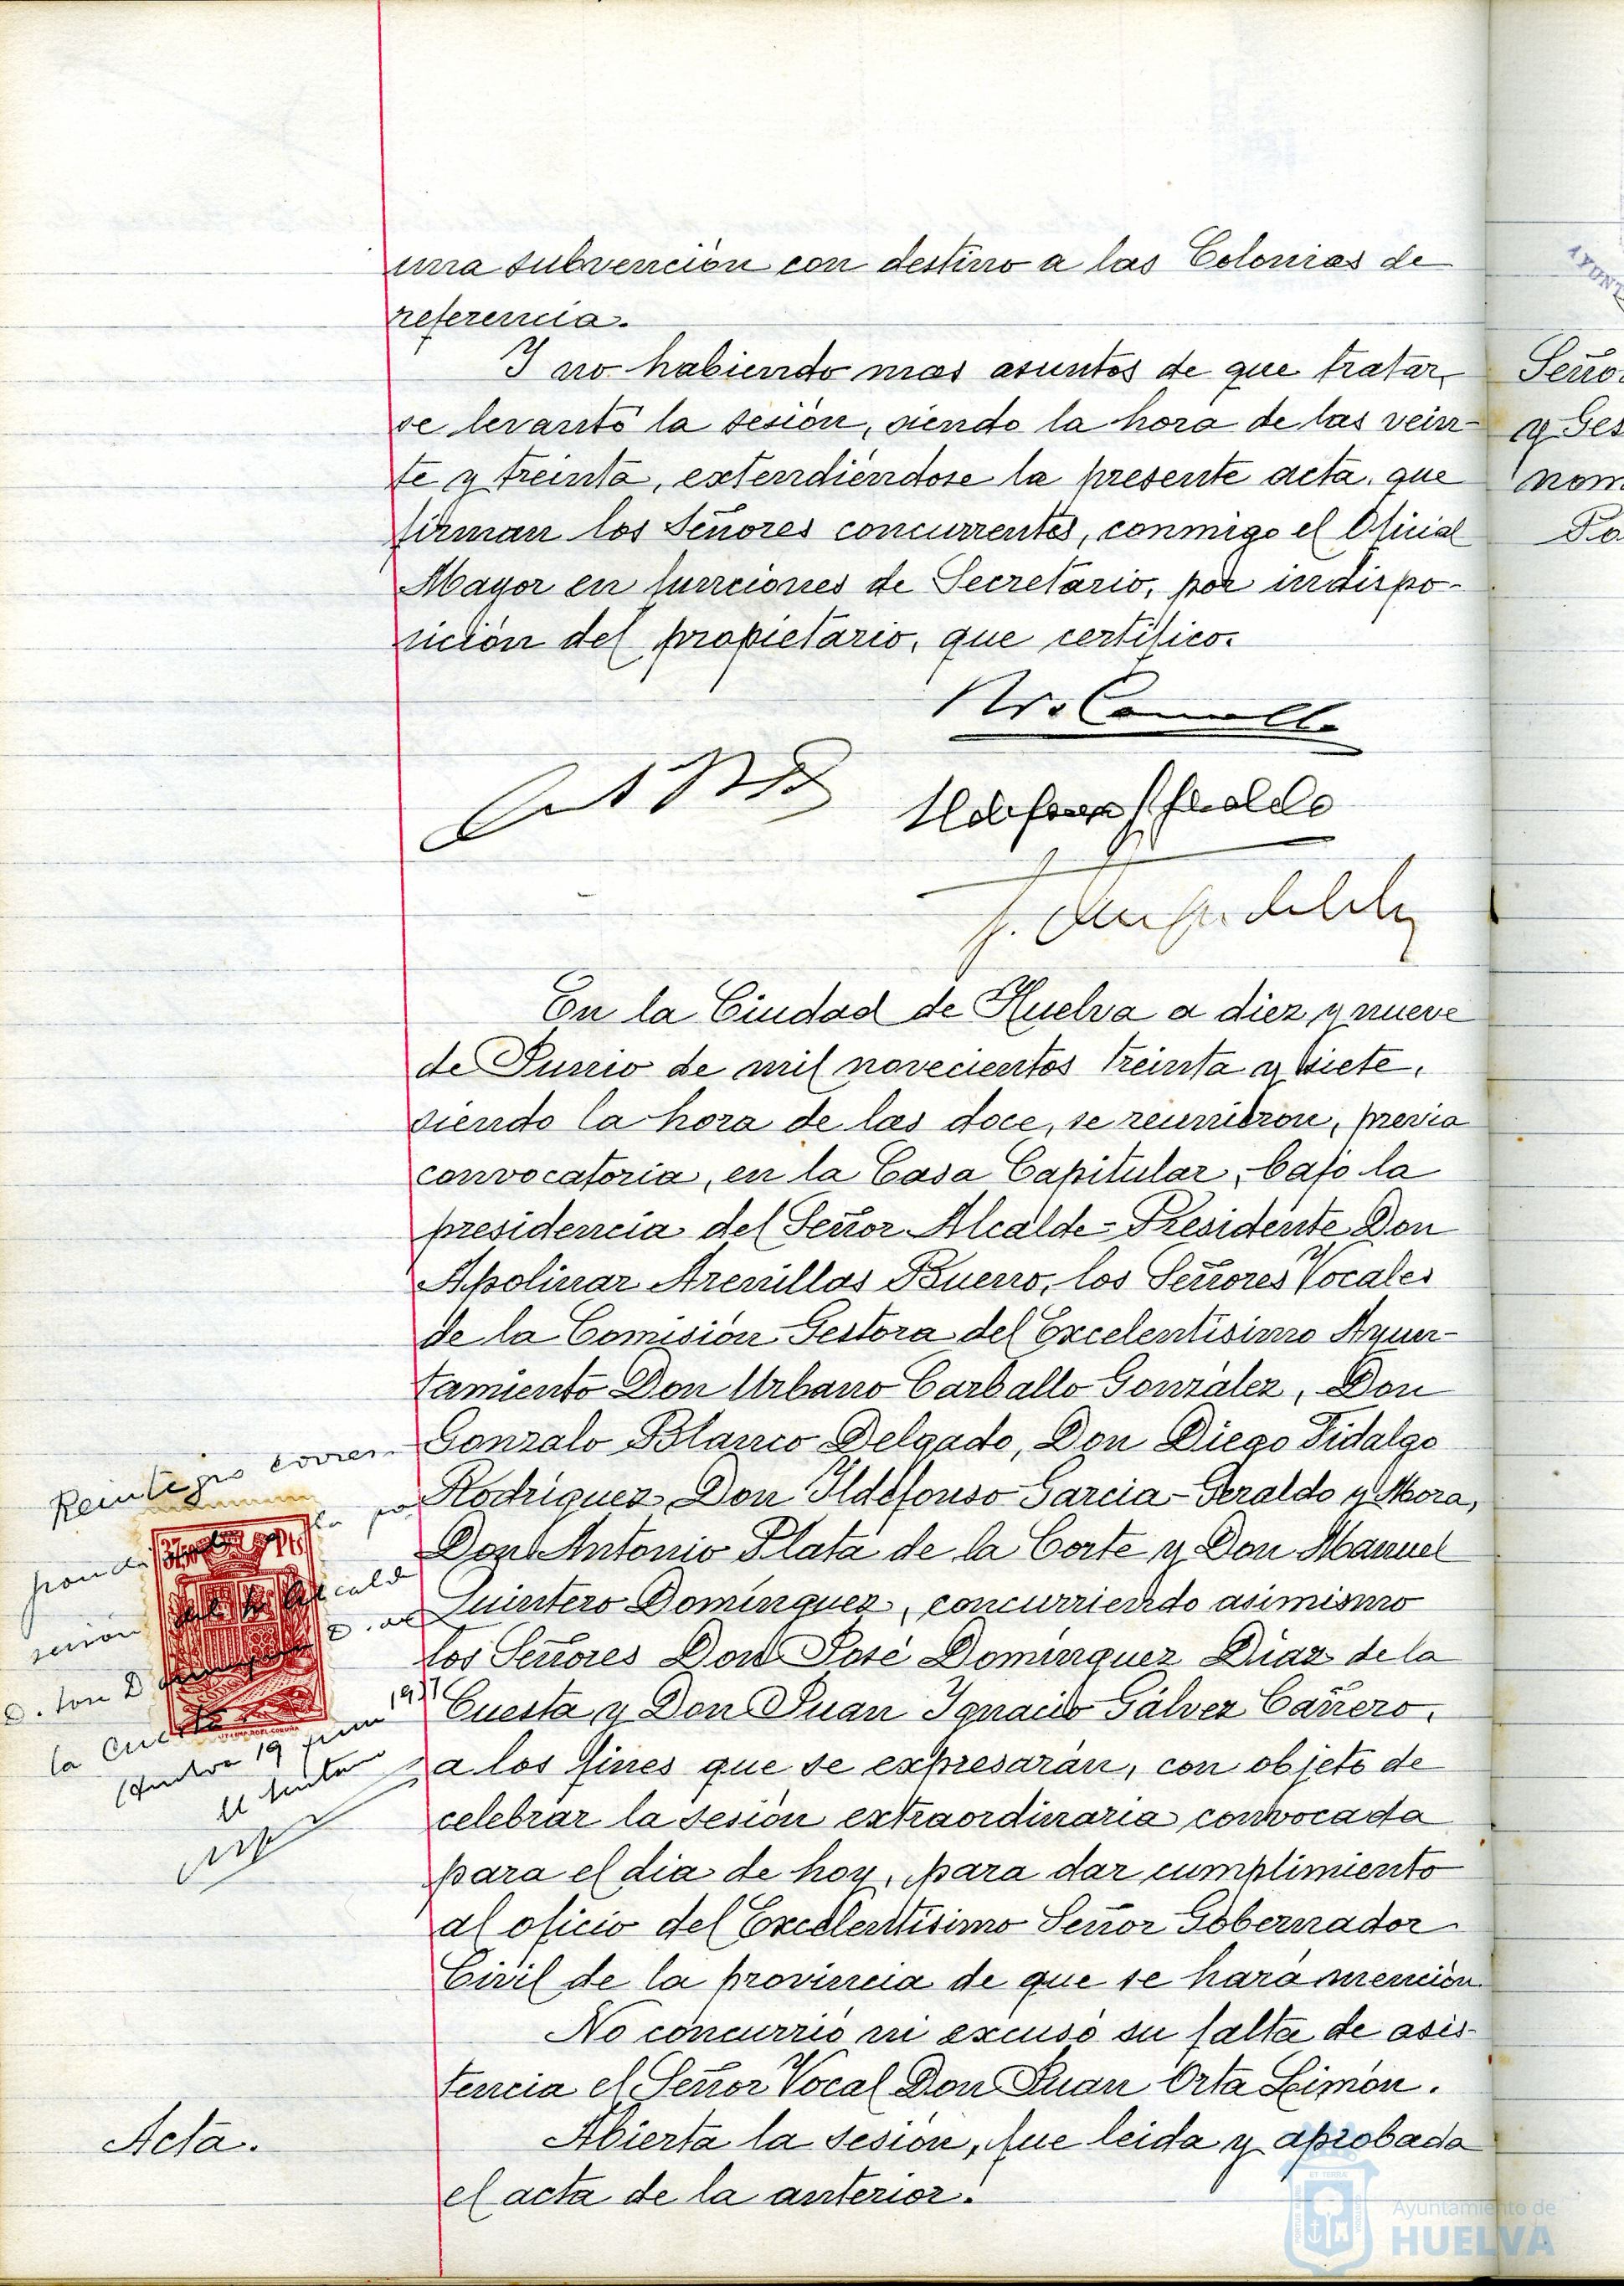 una subvención con destino a las Colonias de
referencia.
Y no habiendo mas asuntos de que tratar,
se levantó la sesión, siendo la hora de las vein-
te y treinta, extendiéndose la presente acta, que
firman los Señores concurrentes, conmigo el Oficial
Mayor en funciones de Secretario, por indispo-
sición del propietario, que certifico.
En la Ciudad de Huelva a diez y nueve
de Junio de mil novecientos treinta y siete,
siendo la hora de las doce, se reunieron, previa
convocatoria, en la Casa Capitular, bajo la
presidencia del Señor Alcalde-Presidente Don
Apolinar Arenillas Bueno, los Señores Vocales
de la Comisión Gestora del Excelentísimo Ayun-
tamiento Don Urbano Carballo González, Don
Gonzalo Blanco Delgado, Don Diego Fidalgo
Rodríguez, Don Ildefonso Garcia-Geraldo y Mora,
Don Antonio Plata de la Corte y Don Manuel
Quintero Domínguez, concurriendo asimismo
los Señores Don José Domínguez Díaz de la
Cuesta y Don Juan Ignacio Gálvez Cañero,
a los fines que se expresarán, con objeto de
celebrar la sesión extraordinaria convocada
para el dia de hoy, para dar cumplimiento
al oficio del Excelentísimo Señor Gobernador
Civil de la provincia de que se hará mención
No concurrió ni excusó su falta de asis-
tencia el Señor Vocal Don Juan Orta Limón.
Abierta la sesión, fue leida y aprobada
el acta de la anterior.
Reintegro corres-
la po
sesión del Sr Alcalde
la Cuesta
Huelva 19 junio 1937
Acta.
Señor
y Ges
nom
AYUNT
Ayuntamiento de
HUELVA